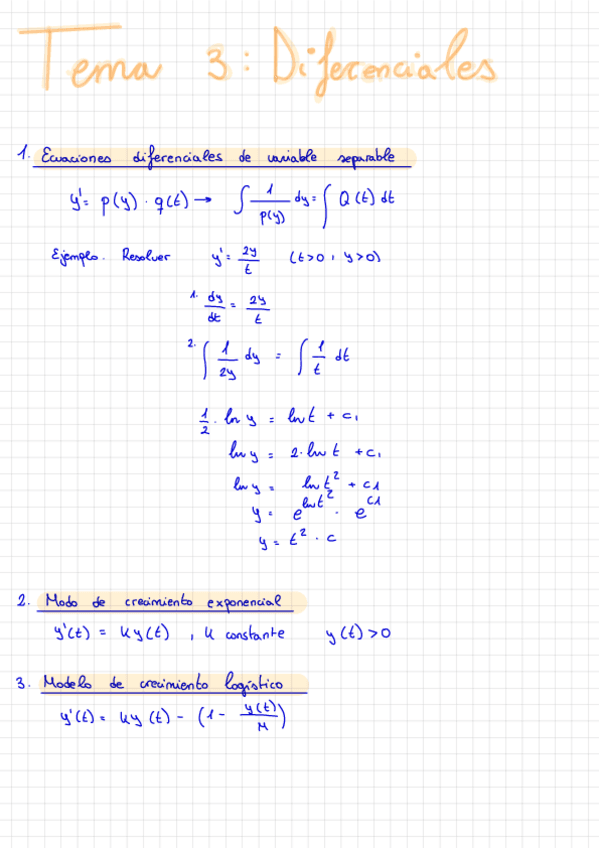 Tema 3: Diferenciales
1. Ecuaciones diferenciales de variable separable
y' = p(y) · q(t) → ∫ 1/p(y) dy = ∫ Q(t) dt
Ejemplo. Resolver y' = 2y/t (t>0, y>0)
1. dy/dt = 2y/t
2. ∫ 1/2y dy = ∫ 1/t dt
1/2 · ln y = ln t + c₁
ln y = 2 · ln t + c₁
ln y = ln t² + c1
y = e^(ln t²) · e^(c1)
y = t² · c
2. Modo de crecimiento exponencial
y'(t) = k y(t), k constante y(t) > 0
3. Modelo de crecimiento logístico
y'(t) = k y (t) - (1 - y(t)/M)